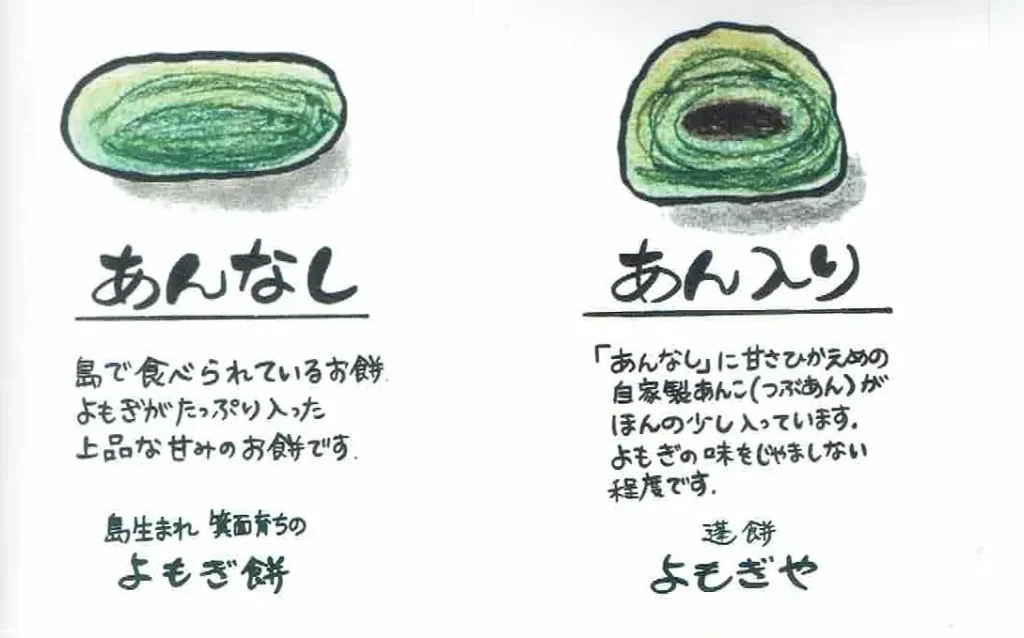 あんなし
島で食べられているお餅.
よもぎがたっぷり入った
上品な甘みのお餅です.
島生まれ 箕面育ちの
よもぎ餅
あん入り
「あんなし」に甘さひかえめの
自家製あんこ(つぶあん)が
ほんの少し入っています.
よもぎの味をじゃましない
程度です.
蓬餅
よもぎや